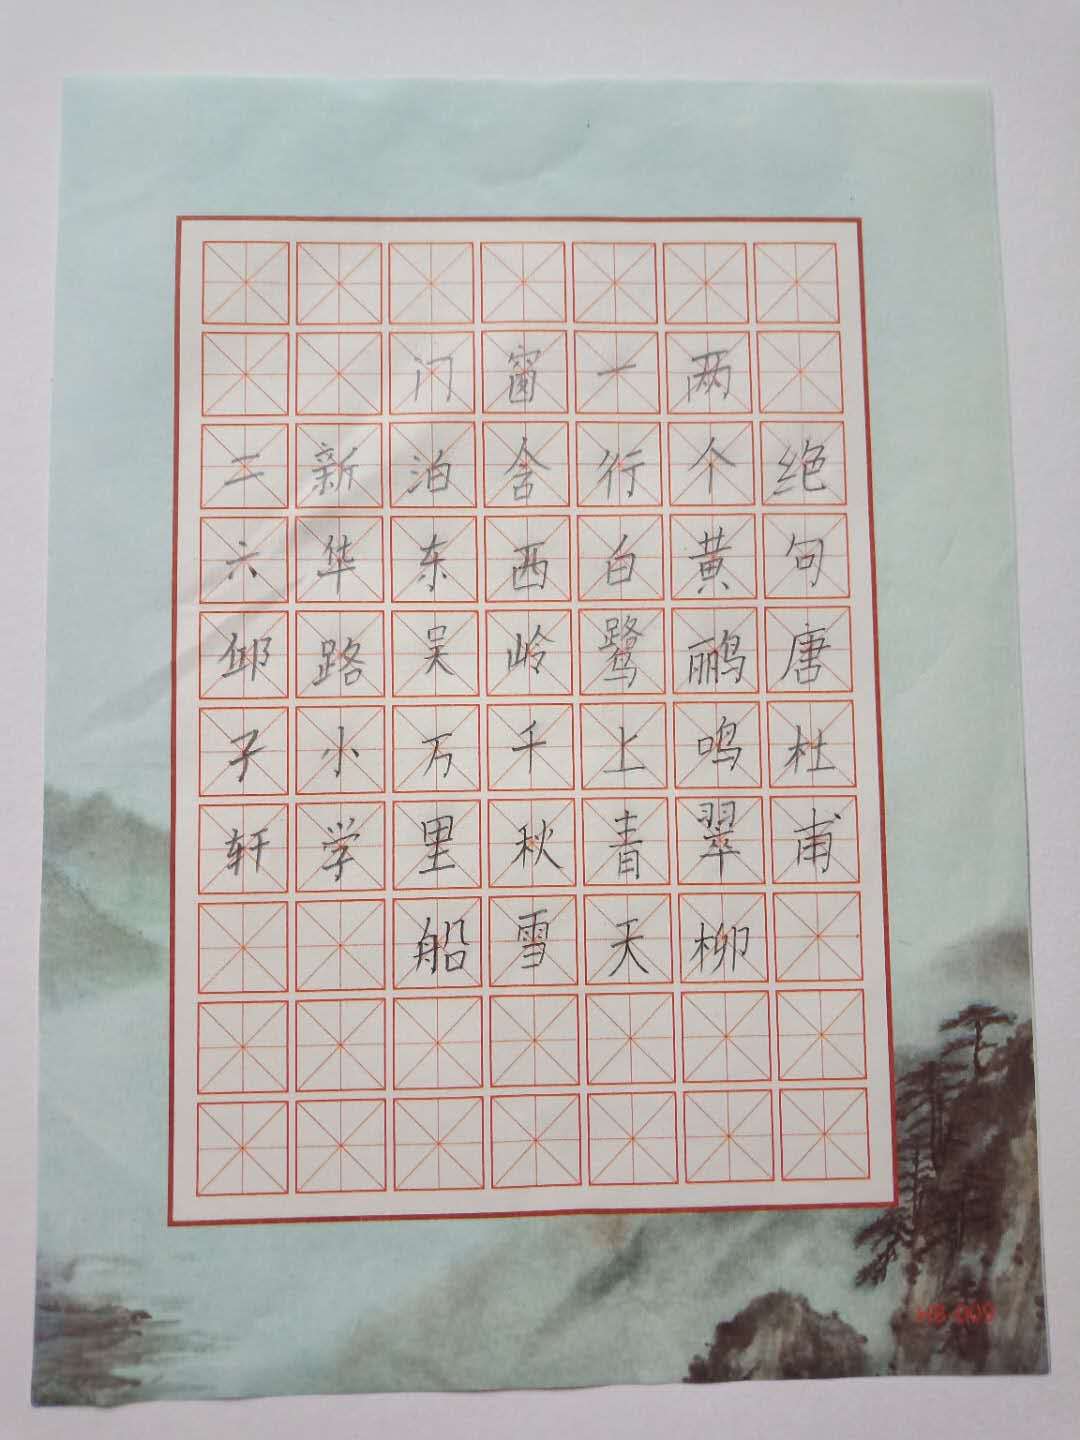 绝句唐杜甫
两个黄鹂鸣翠柳
一行白鹭上青天
窗含西岭千秋雪
门泊东吴万里船
新华路小学
二六邱子轩
HB-009